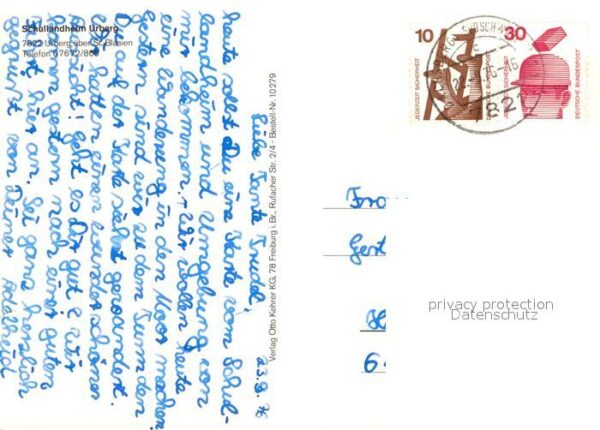 Schullandheim Urberg
7822 Urberg über St. Blasien
Telefon 07672/80
23.9.76
Liebe Tante Trudel,
heute sollst Du eine Karte vom Schul-
landheim und Umgebung von
mir bekommen. Wir wollen heute
eine Wanderung in den Moor machen.
Gestern sind wir zu dem Turm den
Du auf der Karte siehst gewandert.
Wir hatten einen wunderschöne
Aussicht! Geht es Dir gut? Wir
kamen nach einer guten
Fahrt hier an. Sei ganz herzlich
gegrüßt von Deiner Adelheid
Verlag Otto Kehrer KG, 78 Freiburg i. Br., Rufacher Str. 2/4 · Bestell-Nr. 10 279
10
JEDERZEIT SICHERHEIT
DEUTSCHE BUNDESPOST
30
JEDERZEIT SICHERHEIT
DEUTSCHE BUNDESPOST
7821
Gert
6
privacy protection
Datenschutz